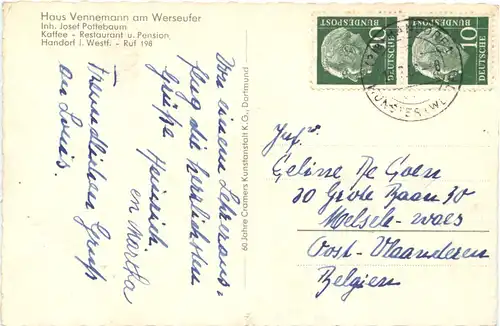 Haus Vennemann am Werseufer
Inh. Josef Pottebaum
Kaffee - Restaurant u. Pension
Handorf i. Westf. - Ruf 198
Von einem Lehreraus-
flug die herzlichsten
Grüße Heinrich
en Martha
Freundlichen Gruß
an Louis.
60 Jahre Cramers Kunstanstalt K.G., Dortmund
10
DEUTSCHE
BUNDESPOST
10
DEUTSCHE
BUNDESPOST
MÜNSTER (WESTF
Jufr.
Celine De Goen
30 Grote Baan 30
Melsele-Waes
Oost-Vlaanderen
Belgien